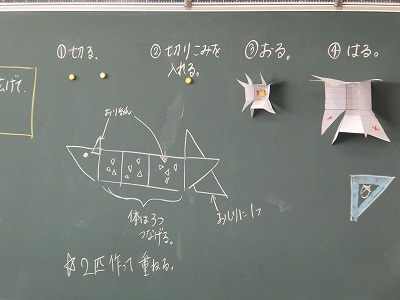 ①切る。
②切りこみを
入れる。
③おる。
④はる。
げて、
体は3つ
つなげる。
おしりに1つ
☆2匹作って重ねる。